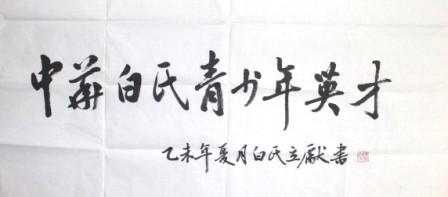 中華白氏青少年英才
乙未年夏月白氏立献書